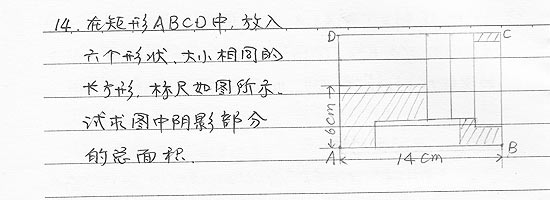 14. 在矩形ABCD中,放入
六个形状、大小相同的
长方形,标尺如图所示.
试求图中阴影部分
的总面积.
D
C
6cm
A
14cm
B